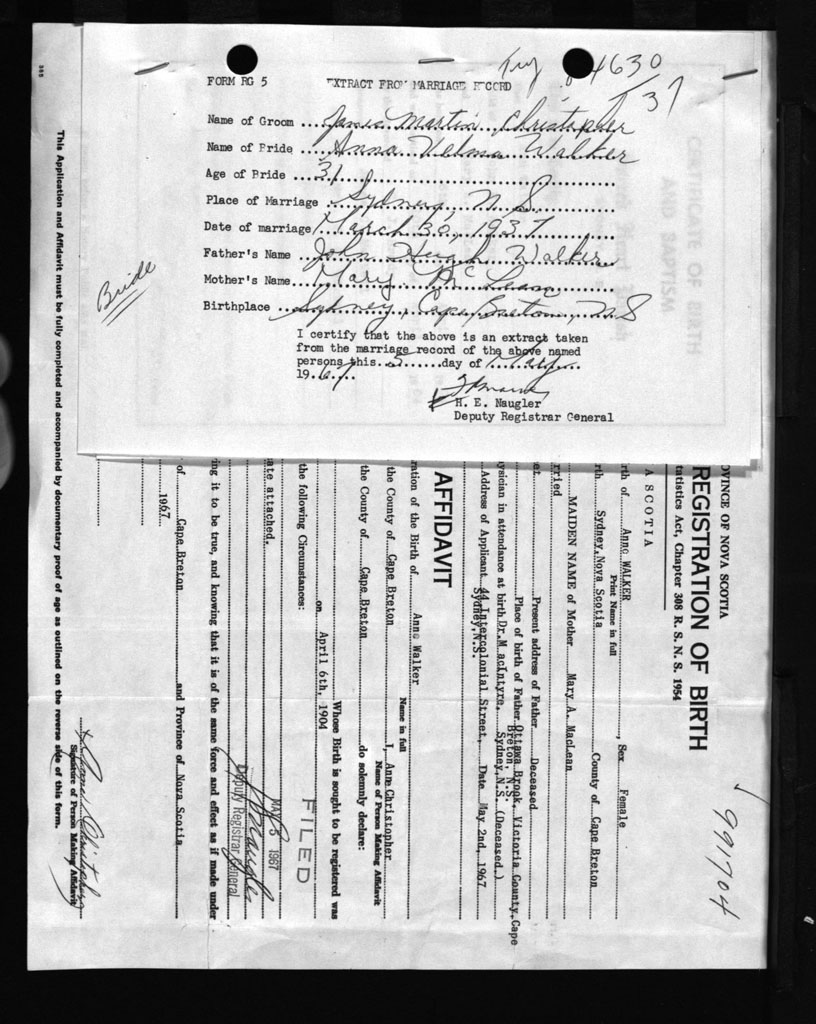 4630
37
FORM RG 5 EXTRACT FROM MARRIAGE RECORD
Name of Groom ... James Martin Christopher
Name of Bride ... Anna Velma Walker
Age of Bride ... 31
Place of Marriage Sydney, N.S.
Date of marriage March 30, 1937
Father's Name ... John Hugh Walker
Mother's Name ... Mary McLean
Birthplace ... Sydney, Cape Breton, N.S
Bride
I certify that the above is an extract taken
from the marriage record of the above named
persons this..5......day of May....
19.67...
H. E. Naugler
Deputy Registrar General
991704
OVINCE OF NOVA SCOTIA
REGISTRATION OF BIRTH
tatistics Act, Chapter 308 R. S. N. S. 1954
A SCOTIA
rth of Anne WALKER, Sex Female
Print Name in full
rth Sydney, Nova Scotia County of Cape Breton
MAIDEN NAME of Mother Mary A. MacLean
rried
Present address of Father Deceased
Place of birth of Father Ottawa Brook, Victoria County, Cape
Breton, N.S.
ysician in attendance at birth Dr. M acIntyre, Sydney, N.S. (Deceased.)
Address of Applicant 44 Intercolonial Street, Date May 2nd, 1967
Sydney, N.S.
AFFIDAVIT
ration of the Birth of Anne Walker
Name in full
the County of Cape Breton I, Anne Christopher
Name of Person Making Affidavit
the County of Cape Breton do solemnly declare:
Whose Birth is sought to be registered was
on April 6th, 1904
the following Circumstances:
FILED
ate attached.
MAY 5 1967
Deputy Registrar General
ring it to be true, and knowing that it is of the same force and effect as if made under
of Cape Breton and Province of Nova Scotia
1967
Signature of Person Making Affidavit
This Application and Affidavit must be fully completed and accompanied by documentary proof of age as outlined on the reverse side of this form.